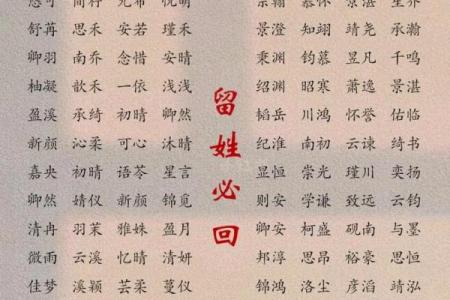 舒苒 思禾 安若 瑾禾
卿羽 南乔 念惜 安晴
柚凝 歆禾 一依 浅浅
盈溪 承绮 初晴 卿然
新颜 沁柔 可心 沐晴
嘉央 初晴 语苓 星言
卿然 婧仪 新颜 锦觅
清冉 羽茉 雅姝 盈月
微雨 云溪 忆晴 清妍
佳梦 溪颖 芸柔 蔓仪
留姓必回
景澄 知翊 靖尧 承瀚
秉渊 钧慕 昱凡 千鸣
绍渊 昭寒 萧逸 景湛
韬岳 川鸿 怀誉 佑临
纪淮 南初 云谏 绮书
显恒 崇光 瑾川 奕扬
则安 学谦 致远 云钧
卿安 柯盛 砚南 与墨
邦淳 思昂 裕豪 思恒
锦鸿 洛尘 彦滔 靖泓